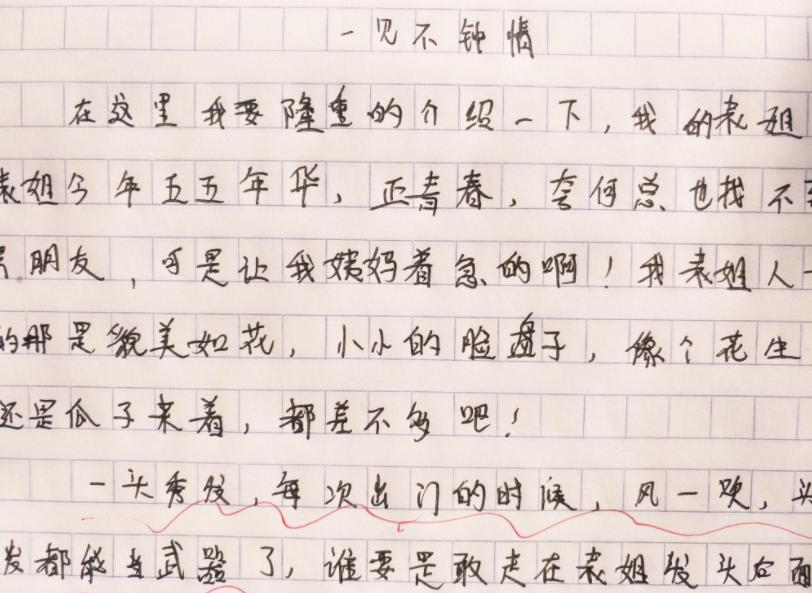 一见不钟情
在这里我要隆重的介绍一下，我的表姐
表姐今年五五年华，正青春，奈何总也找不
朋友，可是让我姨妈着急的啊！我表姐人
的那是貌美如花，小小的脸盘子，像个花生
还是瓜子来着，都差不多吧！
一头秀发，每次出门的时候，风一吹，头
发都能当武器了，谁要是敢走在表姐发头后面